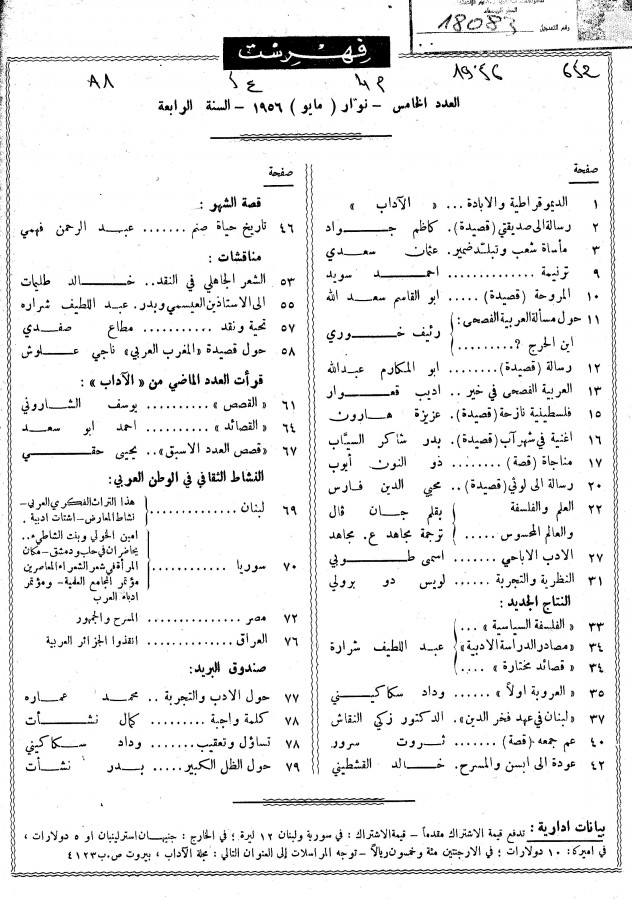 رقم التسجيل
18083
فهرست
652
1956
م4
ع5
A1
العدد الخامس - نوار ( مايو ) ١٩٥٦ - السنة الرابعة
صفحة
١ الديموقراطية والابادة... « الآداب »
٢ رسالة الى صديقتي (قصيدة). كاظم جواد
٣ مأساة شعب وتبلّد ضمير. عثمان سعدي
٩ ترنيمة .............. احمد سويد
١٠ المروحة (قصيدة) ..... ابو القاسم سعد الله
١١ حول مسألة العربية الفصحى: اين الحرج ؟......... رئيف خوري
١٢ رسالة (قصيدة)........ ابو المكارم عبدالله
١٣ العربية الفصحى في خير .. اديب قعوار
١٥ فلسطينية نازحة (قصيدة). عزيزة هارون
١٦ اغنية في شهر آب (قصيدة). بدر شاكر السيّاب
١٧ مناجاة (قصة) ........ ذو النون أيوب
٢٠ رسالة الى لوثي (قصيدة).. محيي الدين فارس
٢٢ العلم والفلسفة والعالم المحسوس ..... بقلم جان ڤال ترجمة مجاهد ع. مجاهد
٢٧ الادب الاباحي ....... اسمى طوبي
٣١ النظرية والتجربة ...... لويس دو برولي
النتاج الجديد :
٣٣ « الفلسفة السياسية » ...
٣٤ «مصادر الدراسة الادبية» عبد اللطيف شرارة
٣٤ « قصائد مختارة » ....
٣٥ « العروبة اولاً » ...... وداد سكاكيني
٣٧ «لبنان في عهد فخر الدين». الدكتور زكي النقاش
٤٠ عم جمعه (قصة) ....... ثروت سرور
٤٢ عودة الى ابسن والمسرح. خالد القشطيني
صفحة
قصة الشهر :
٤٦ تاريخ حياة صنم ....... عبد الرحمن فهمي
مناقشات :
٥٣ الشعر الجاهلي في النقد.. خالد طليمات
٥٥ الى الاستاذين العيسمي وبدر. عبد اللطيف شراره
٥٧ تحية ونقد ........... مطاع صفدي
٥٨ حول قصيدة «المغرب العربي» ناجي علوش
قرأت العدد الماضي من « الآداب » :
٦١ « القصص » .......... يوسف الشاروني
٦٤ « القصائد » .......... احمد ابو سعد
٦٧ «قصص العدد الاسبق».. يحيى حقي
النشاط الثقافي في الوطن العربي:
٦٩ لبنان ............ هذا التراث الفكري العربي- نشاط المعارض- اشتات ادبية .
٧٠ سوريا ............ امين الخولي وبنت الشاطيء.. يحاضران في حلب ودمشق - مكان المرأة في شعر الشعراء المعاصرين مؤتمر المجامع العلمية - ومؤتمر ادباء العرب
٧٢ مصر ............... المسرح والجمهور
٧٦ العراق ............. انقذوا الجزائر العربية
صندوق البريد:
٧٧ حول الادب والتجربة .. محمد عماره
٧٨ كلمة واجبة .......... كمال نشأت
٧٨ تساؤل وتعقيب........ وداد سكاكيني
٧٩ حول الظل الكبير..... بدر نشأت
بيانات ادارية : تدفع قيمة الاشتراك مقدماً - قيمة الاشتراك : في سورية ولبنان ١٢ ليرة ؛ في الخارج : جنيهان استرلينيان او ٥ دولارات ،
في اميركا: ١٠ دولارات ؛ في الارجنتين مئة وخمسون ريالاً - توجه المراسلات إلى العنوان التالي : مجلة الآداب ، بيروت ص.ب ٤١٢٣